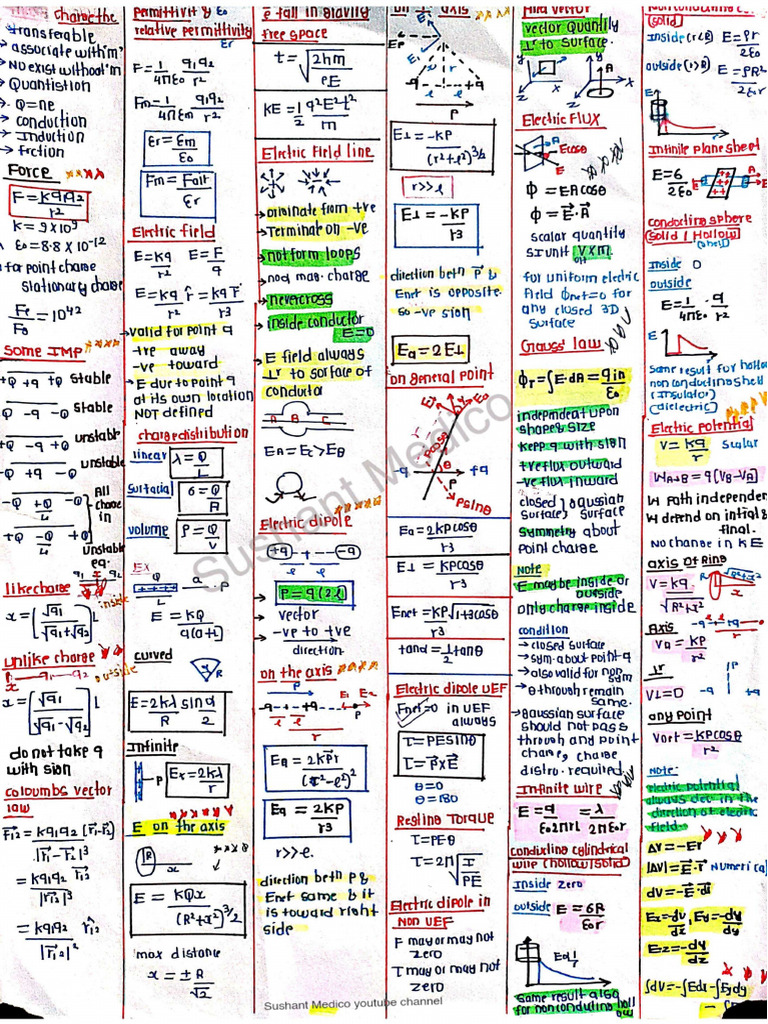 transferable
→ associate with'm'
→ NO exist without'm
→ Quantistion
→ Q=ne
→ conduction
→ Induction
→ friction
Force
F = Kq1q2/r²
K = 9×10⁹
ε0 = 8.8×10⁻¹²
for point charge
stationary charge
Fe/FG = 10⁴²
Some IMP
+Q +q +Q stable
-Q -q -Q stable
+Q -q +Q unstable
-Q +q -Q unstable
All charge in
Unstable eq.
like charge
q1 x q2
inside
x = (√q1/(√q1+√q2))L
Unlike charge
outside
x = (√q1/(√q1-√q2))L
do not take q
with sign
Coloumbs vector
law
F12 = Kq1q2 (r1-r2)/|r1-r2|³
= Kq1q2 r12/|r12|³
= Kq1q2 r̂12/|r12|²
permittivity ε0
relative permittivity
εr
F = 1/4πε0 q1q2/r²
Fm = 1/4πε q1q2/r²
εr = εm/ε0
Fm = Fair/εr
Electric field
E = Kq/r² E = F/q
E = Kq/r² r̂ = Kq r/r³
→ valid for point q
+ve away
-ve toward
→ E due to point q
at its own location
NOT defined
charge distribution
linear λ = Q/L
surfacial σ = Q/A
volume ρ = Q/V
EX
E = KQ/a(a+L)
curved
E = 2Kλ/R sin α/2
Infinite
Ex = 2Kλ/r
E on the axis
E = KQx/(R²+x²)^3/2
max distance
x = ±R/√2
e fall in gravity
free space
t = √2hm/eE
KE = 1/2 q²E²t²/m
Electric Field line
→ originate from +ve
→ Terminate on -ve
→ not form loops
→ no mag. charge
→ never cross
→ inside conductor
E=0
→ E field always
⊥r to surface of
conductor
A B C
EA = EC > EB
Electric dipole
+q + - - -q
→ P = q(2l)
→ vector
→ -ve to +ve
direction
on the axis
Ea = 2KPr/(r²-l²)²
Ea = 2KP/r³
r>>l.
direction beth P &
Enet same & it
is toward right
side
E⊥ = -KP/(r²+l²)^3/2
r>>l
E⊥ = -KP/r³
direction beth P &
Enet is opposite.
So -ve sign
Ea = 2E⊥
on general point
Pcosθ
Psinθ
Ea = 2KPcosθ/r³
E⊥ = KPcosθ/r³
Enet = KP√1+3cosθ/r³
tanα = 1/2 tanθ
Electric dipole UEF
Fnet=0 in UEF
always
τ = PEsinθ
τ = P×E
θ=0
θ=180
Resting Torque
τ=PEθ
T=2π√I/PE
Electric dipole in
Non UEF
F may or may not
zero
τ may or may not
zero
vector quantity
⊥r to surface.
Electric FLUX
Ecosθ
ϕ = EAcosθ
ϕ = E.A
scalar quantity
SI unit V×m
for uniform electric
field ϕnet=0 for
any closed 3D
surface
Gauss' law
ϕT = ∫E.dA = qin/ε0
independent upon
shape & size
Kepp q with sign
+ve flux outward
-ve flux inward
closed gaussian
surface, surface
symmetry about
point charge
Note
E may be inside or
outside
only charge inside
condition
→ closed surface
→ sym. about point q
→ also valid for non
sym
→ ϕ through remain
same.
→ gaussian surface
should not pass
through and point
charge, charge
distro. required
Infinite wire
E = q/ε02πrL = λ/2πε0r
Conducting cylindrical
wire (hollow/solid)
Inside zero
outside E = σR/ε0r
E∝1/r
same result also
for nonconducting hollow
(solid)
inside (r<R) E = ρr/2ε0
outside (r>R) E = ρR²/2ε0r
Infinite plane sheet
E = σ/2ε0
conducting sphere
(solid / Hollow)
(shell)
Inside 0
outside
E = 1/4πε0 . q/r²
same result for hollow
non conducting shell
(insulator)
(dielectric)
Electric potential
V = Kq/r scalar
WA→B = q(VB-VA)
W path independen
W depend on initial &
final.
No change in KE
axis of Ring
V = Kq/√R²+x²
Axis
Va = KP/r²
⊥r
V⊥=0
any point
Vort = KPcosθ/r²
Note:
electric potential
always dec in the
direction of electric
field.
ΔV = -Er
|ΔV| = E.r Numerical
dV = -E.dl
Ex = -dv/dx, Ey = -dv/dy
Ez = -dv/dz
∫dV = -∫Edx - ∫Eydy
Sushant Medico
Sushant Medico youtube channel